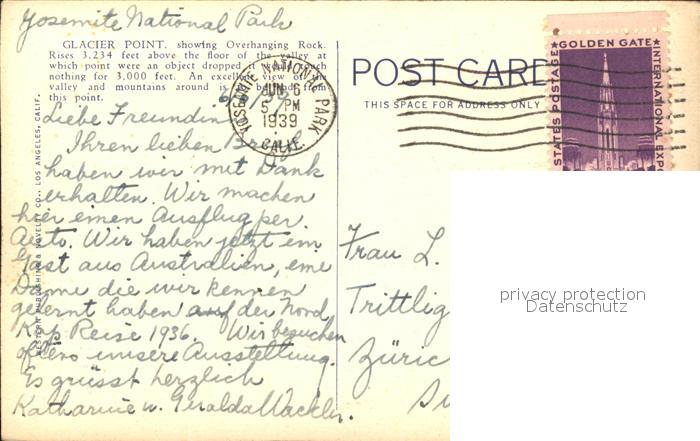 Yosemite National Park
GLACIER POINT, showing Overhanging Rock.
Rises 3,234 feet above the floor of the valley at
which point were an object dropped it would touch
nothing for 3,000 feet. An excellent view of the
valley and mountains around is to be had from
this point.
WESTERN PUBLISHING & NOVELTY CO., LOS ANGELES, CALIF.
YOSEMITE NATIONAL PARK
JUN 6
5 PM
1939
CALIF.
POST CARD
THIS SPACE FOR ADDRESS ONLY
GOLDEN GATE
INTERNATIONAL EXPO
STATES POSTAGE
Liebe Freundin
Ihren lieben Brief
haben wir mit Dank
erhalten. Wir machen
hier einen Ausflug per
Auto. Wir haben jetzt ein
Gast aus Australien, eine
Dame die wir kennen
gelernt haben auf der Nord
Kap Reise 1936. Wir besuchen
öfters unsere Ausstellung.
Es grüsst herzlich
Katharine u. Geralda Wackler.
Frau L.
Trittlig
Züric
privacy protection
Datenschutz